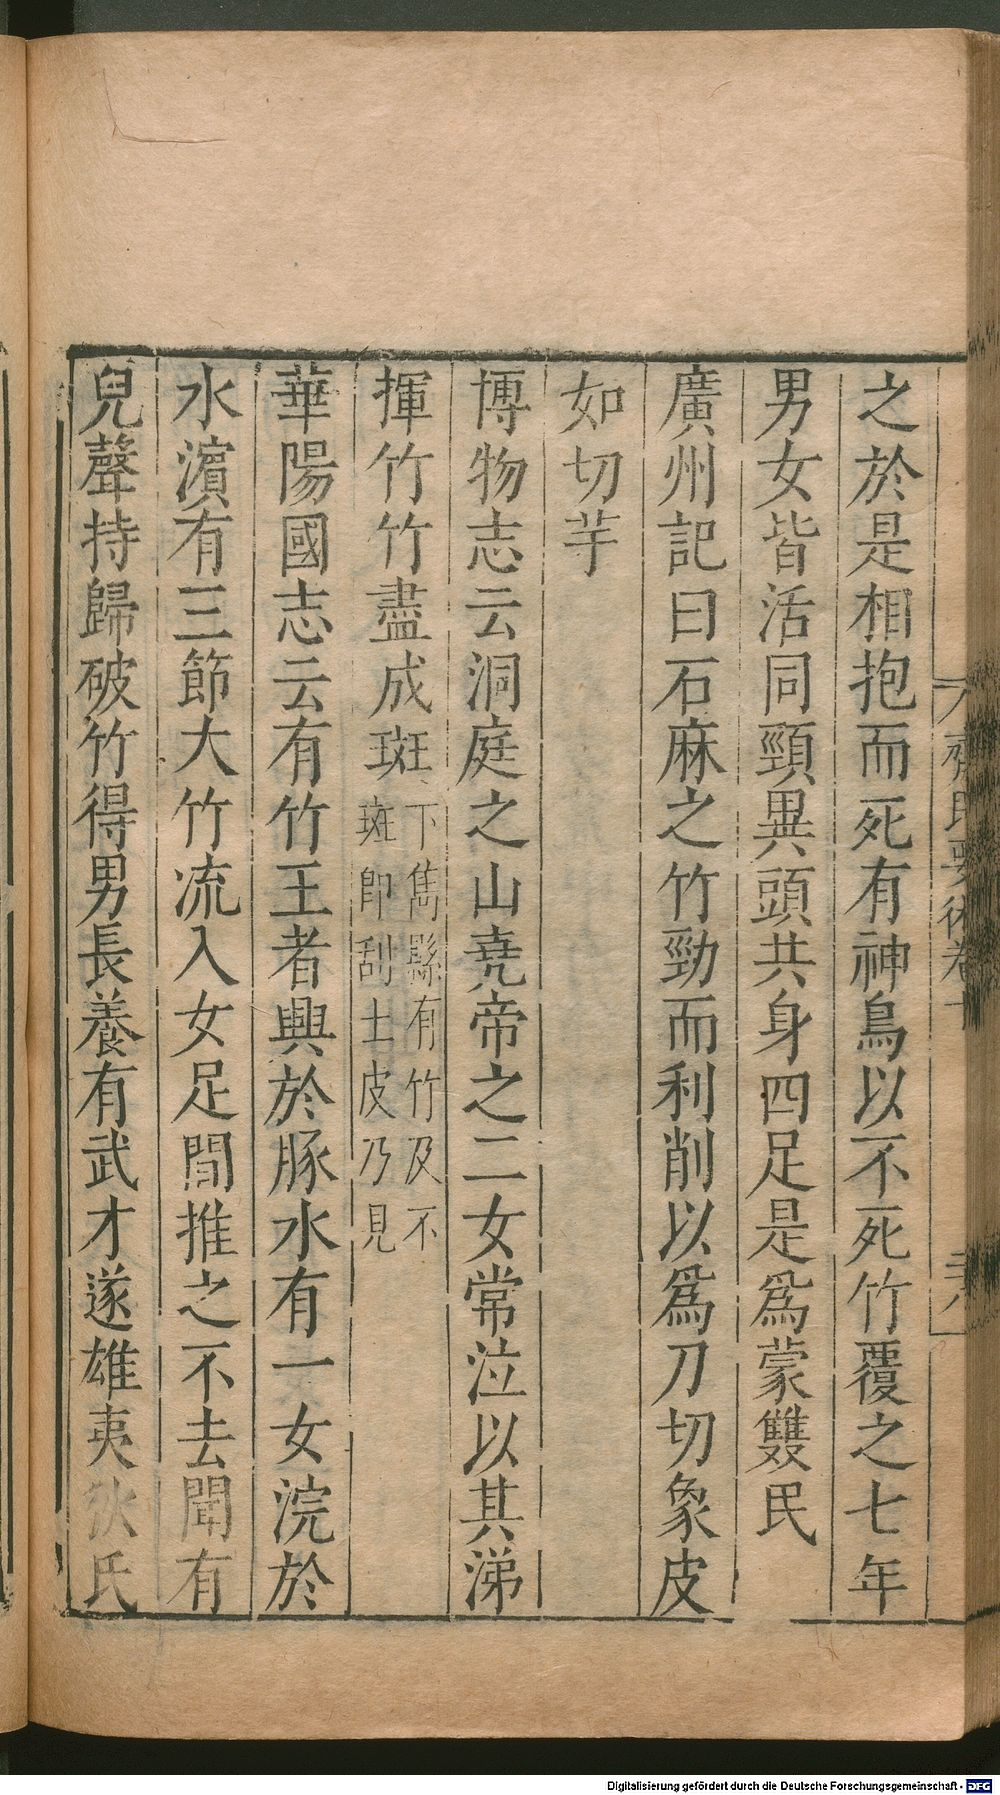 之於是相抱而死有神鳥以不死竹覆之七年
男女皆活同頸異頭共身四足是爲蒙雙民
廣州記曰石麻之竹勁而利削以爲刀切象皮
如切芋
博物志云洞庭之山堯帝之二女常泣以其涕
揮竹竹盡成斑
下雋縣有竹及不
斑即刮土皮乃見
華陽國志云有竹王者興於豚水有一女浣於
水濵有三節大竹流入女足間推之不去聞有
兒聲持歸破竹得男長養有武才遂雄夷狄氏
齊民要術卷十
二八
Digitalisierung gefördert durch die Deutsche Forschungsgemeinschaft - DFG